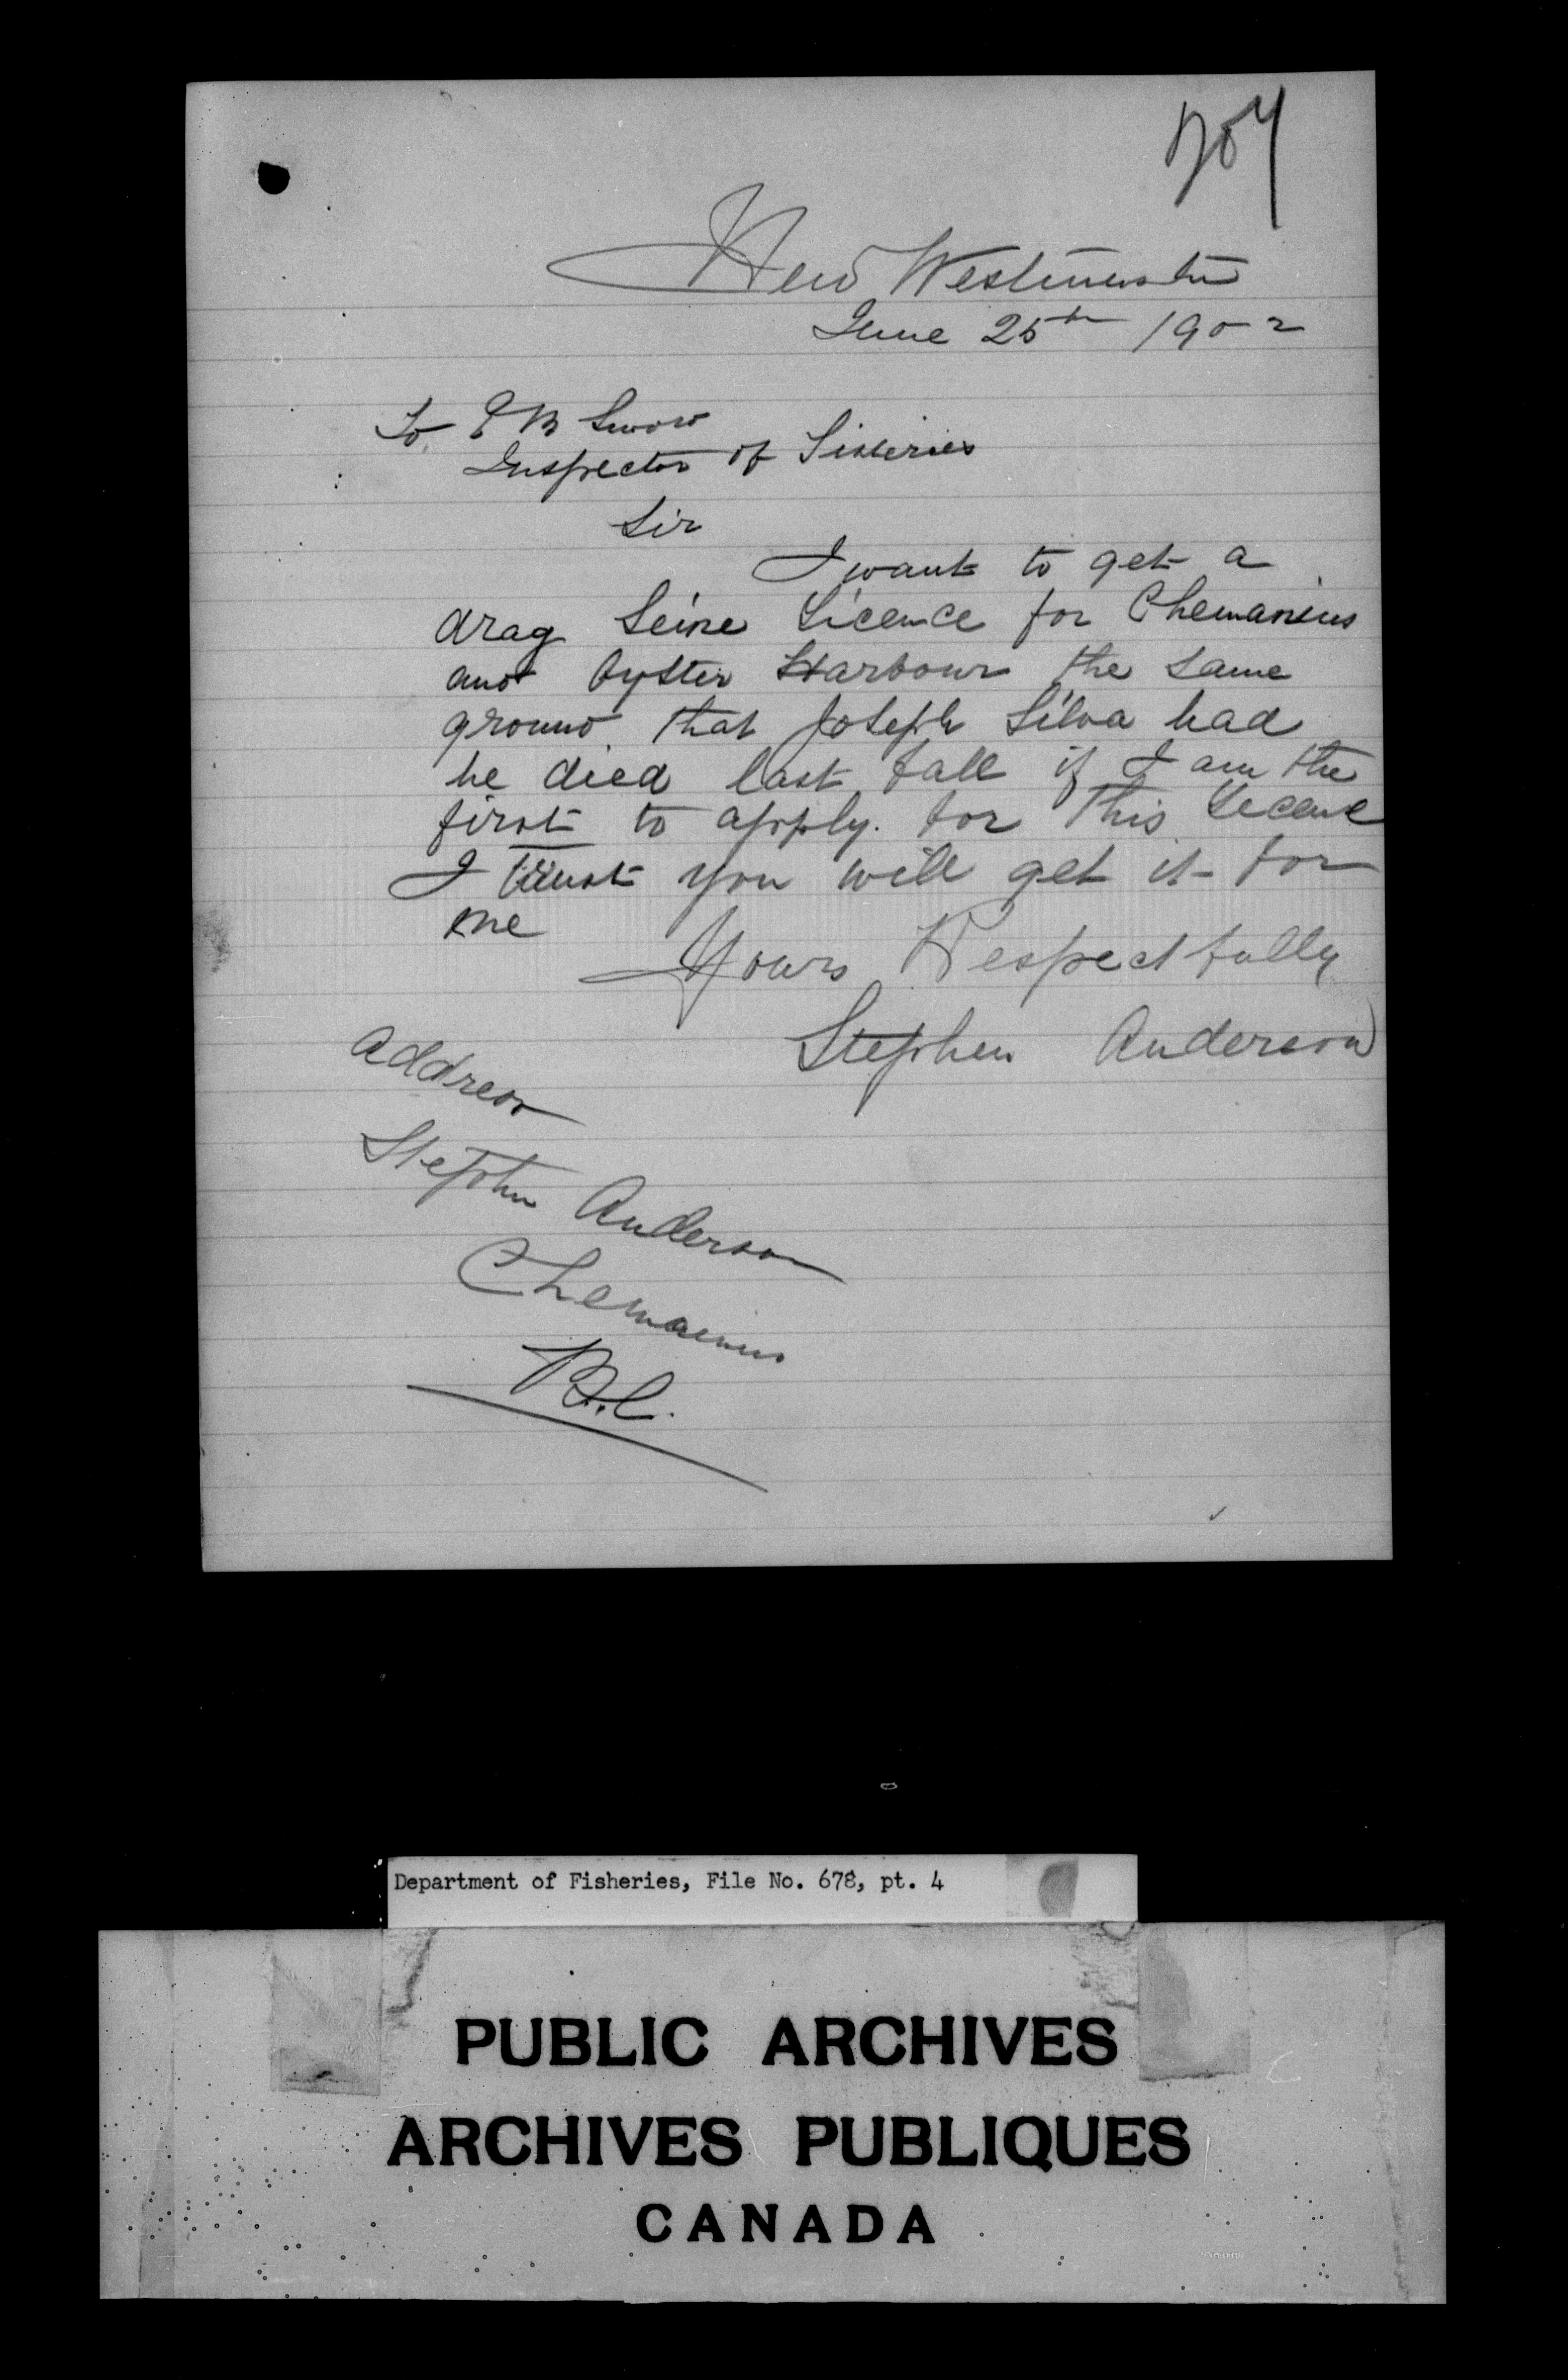 704
New Westminster
June 25th 1902
To E B Sword
Inspector of Fisheries
Sir
I want to get a
drag Seine Licence for Chemanius
and Oyster Harbour the same
ground that Joseph Silva had
he died last fall if I am the
first to apply. for This Licence
I trust you will get it for
me
Yours Respectfully
Stephen Anderson
Address
Stephen Anderson
Chemainus
B.C.
Department of Fisheries, File No. 678, pt. 4
PUBLIC ARCHIVES
ARCHIVES PUBLIQUES
CANADA